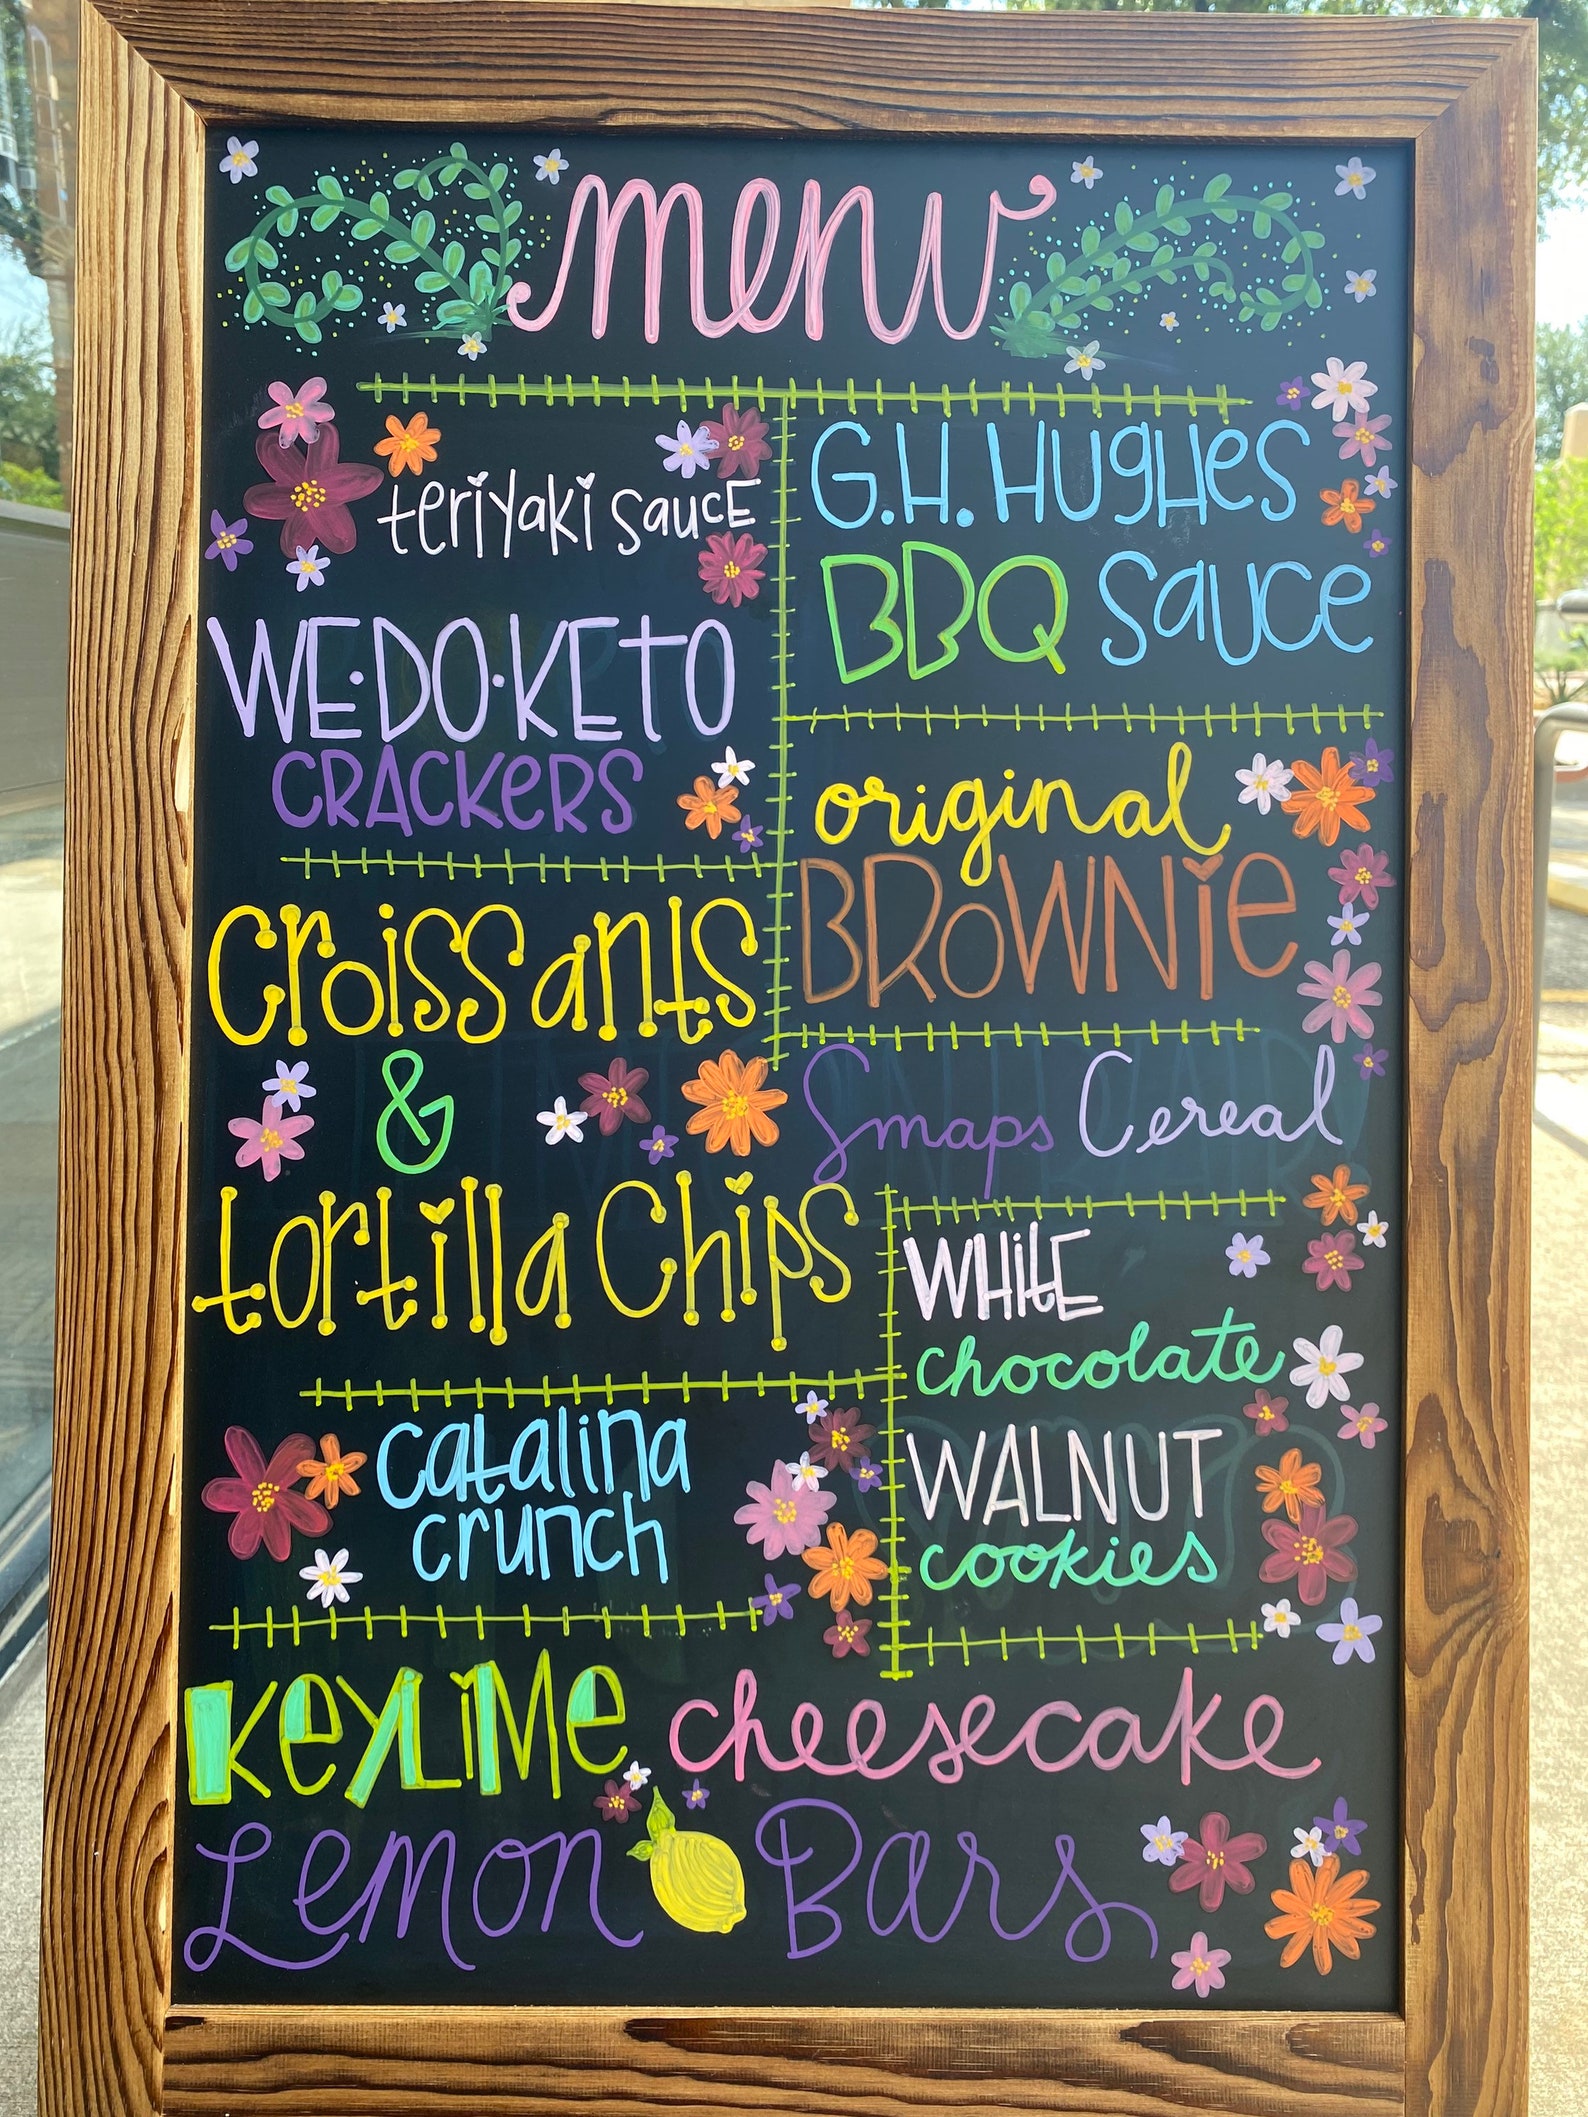 menu
teriyaki sauce
WE·DO·KETO
CRACKERS
Croissants
&
tortilla Chips
catalina
crunch
G.H. HugHes
BBQ sauce
original
BROWNie
Smaps Cereal
WHitE
chocolate
WALNUT
cookies
KeyLiMe cheesecake
Lemon Bars